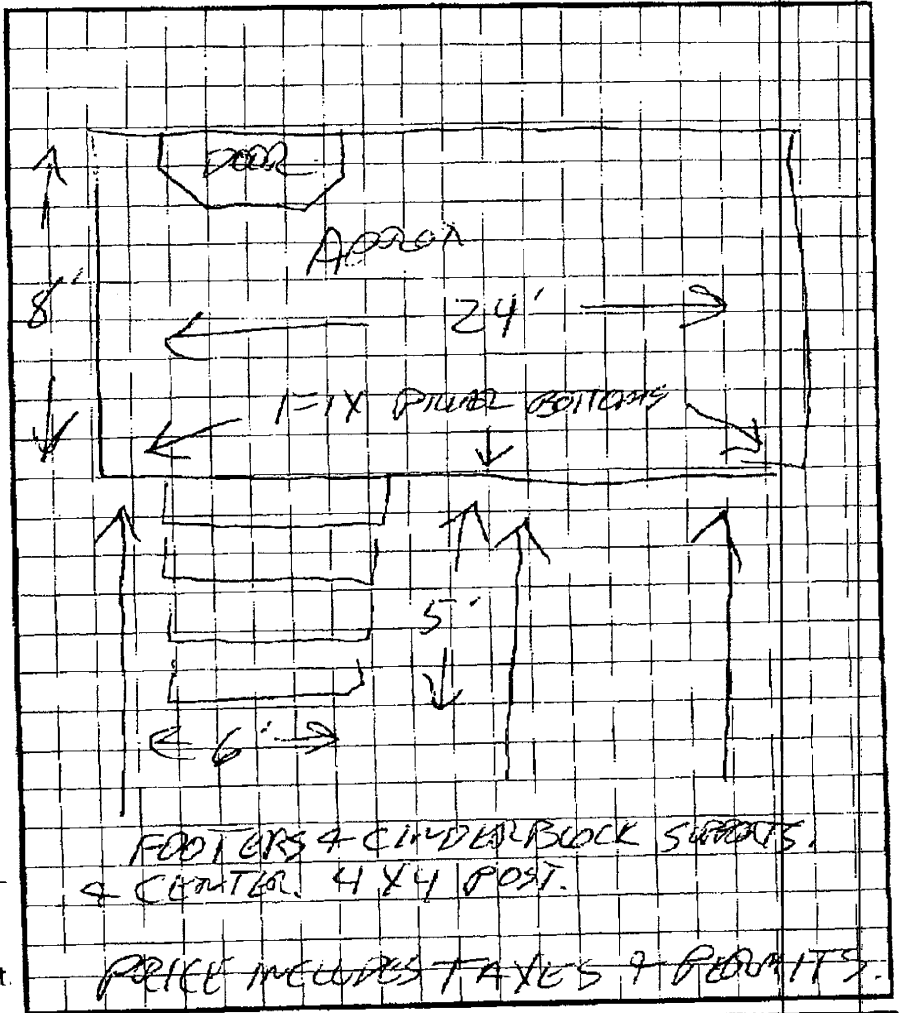 DOOR
APPROX
24'
8'
BOTTOMS
5'
6'
FOOTERS & CINDERBLOCK SUPPORTS.
& CENTER. 4X4 POST.
PRICE INCLUDES TAXES & PERMITS.
t.